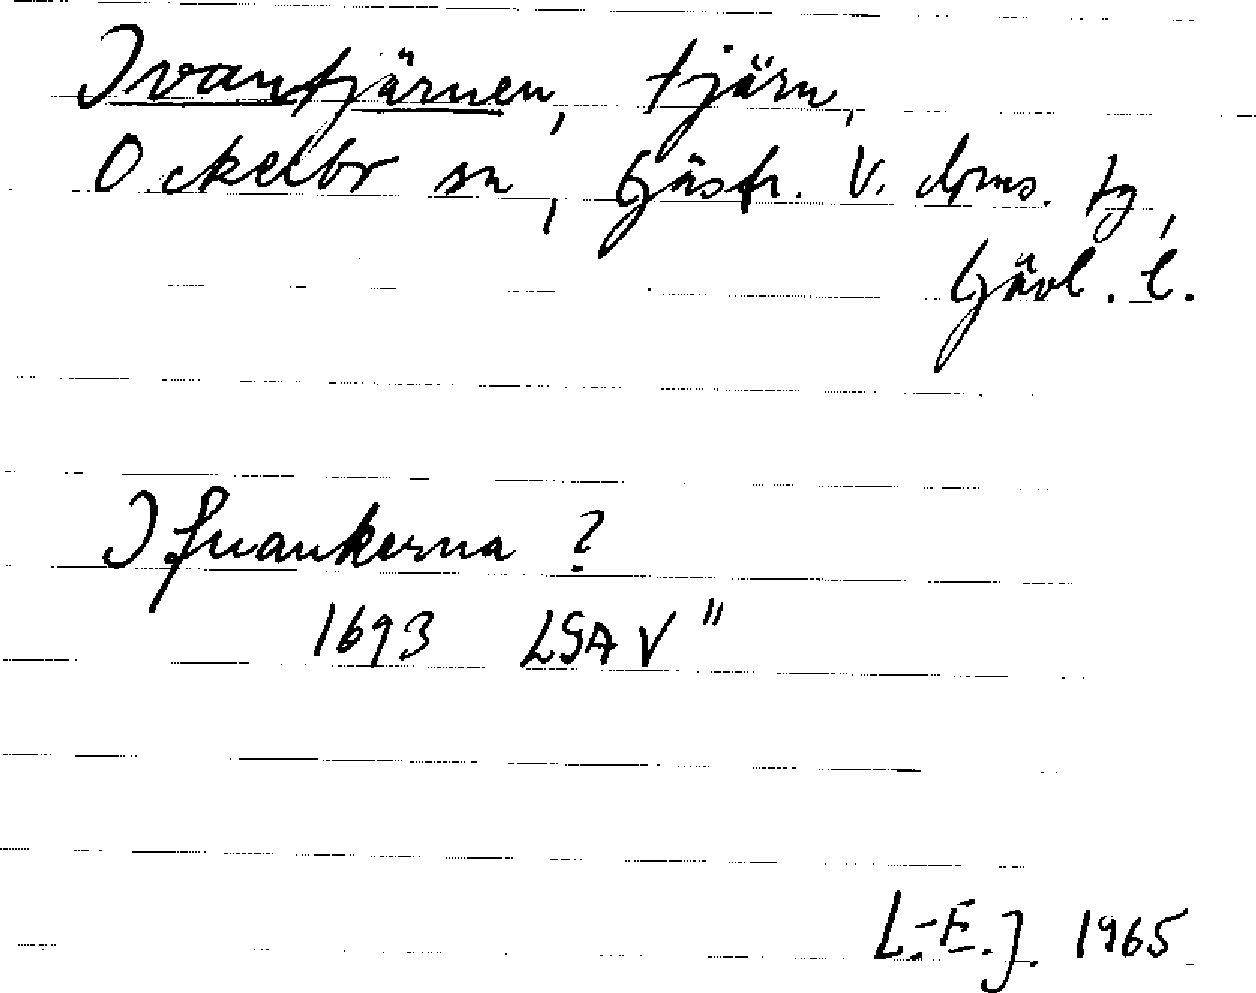 Ivantjärnen, tjärn,
Ockelbo sn, Gästr. V. doms. tg,
Gävl. l.
Ifuankerna ?
1693 LSA V"
L.-E. J. 1965